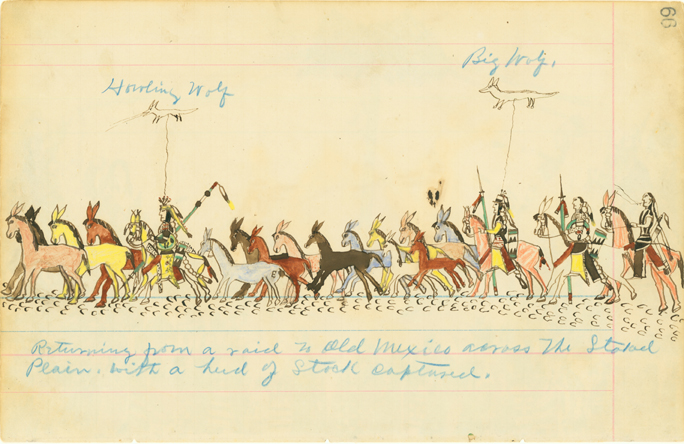 66
Big Wolf.
Howling Wolf
Returning from a raid to Old Mexico across The Staked
Plain. with a herd of Stock captured.